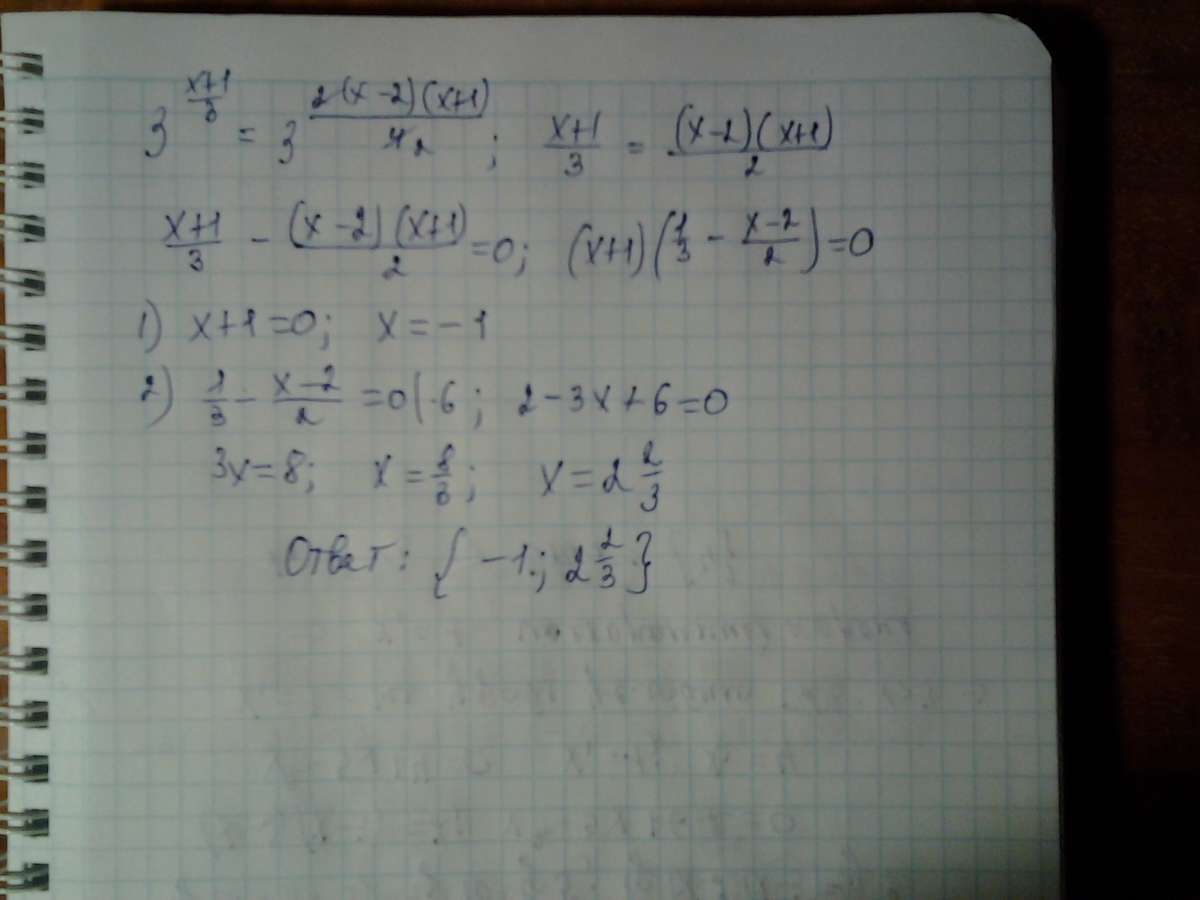 3^((x+1)/3) = 3^(2(x-2)(x+1)/4 2); (x+1)/3 = (x-2)(x+1)/2
(x+1)/3 - (x-2)(x+1)/2 = 0; (x+1)(1/3 - (x-2)/2) = 0
1) x+1=0; x=-1
2) 1/3 - (x-2)/2 = 0 |·6; 2-3x+6=0
3x=8; x=8/3; x=2 2/3
Ответ: {-1; 2 2/3}